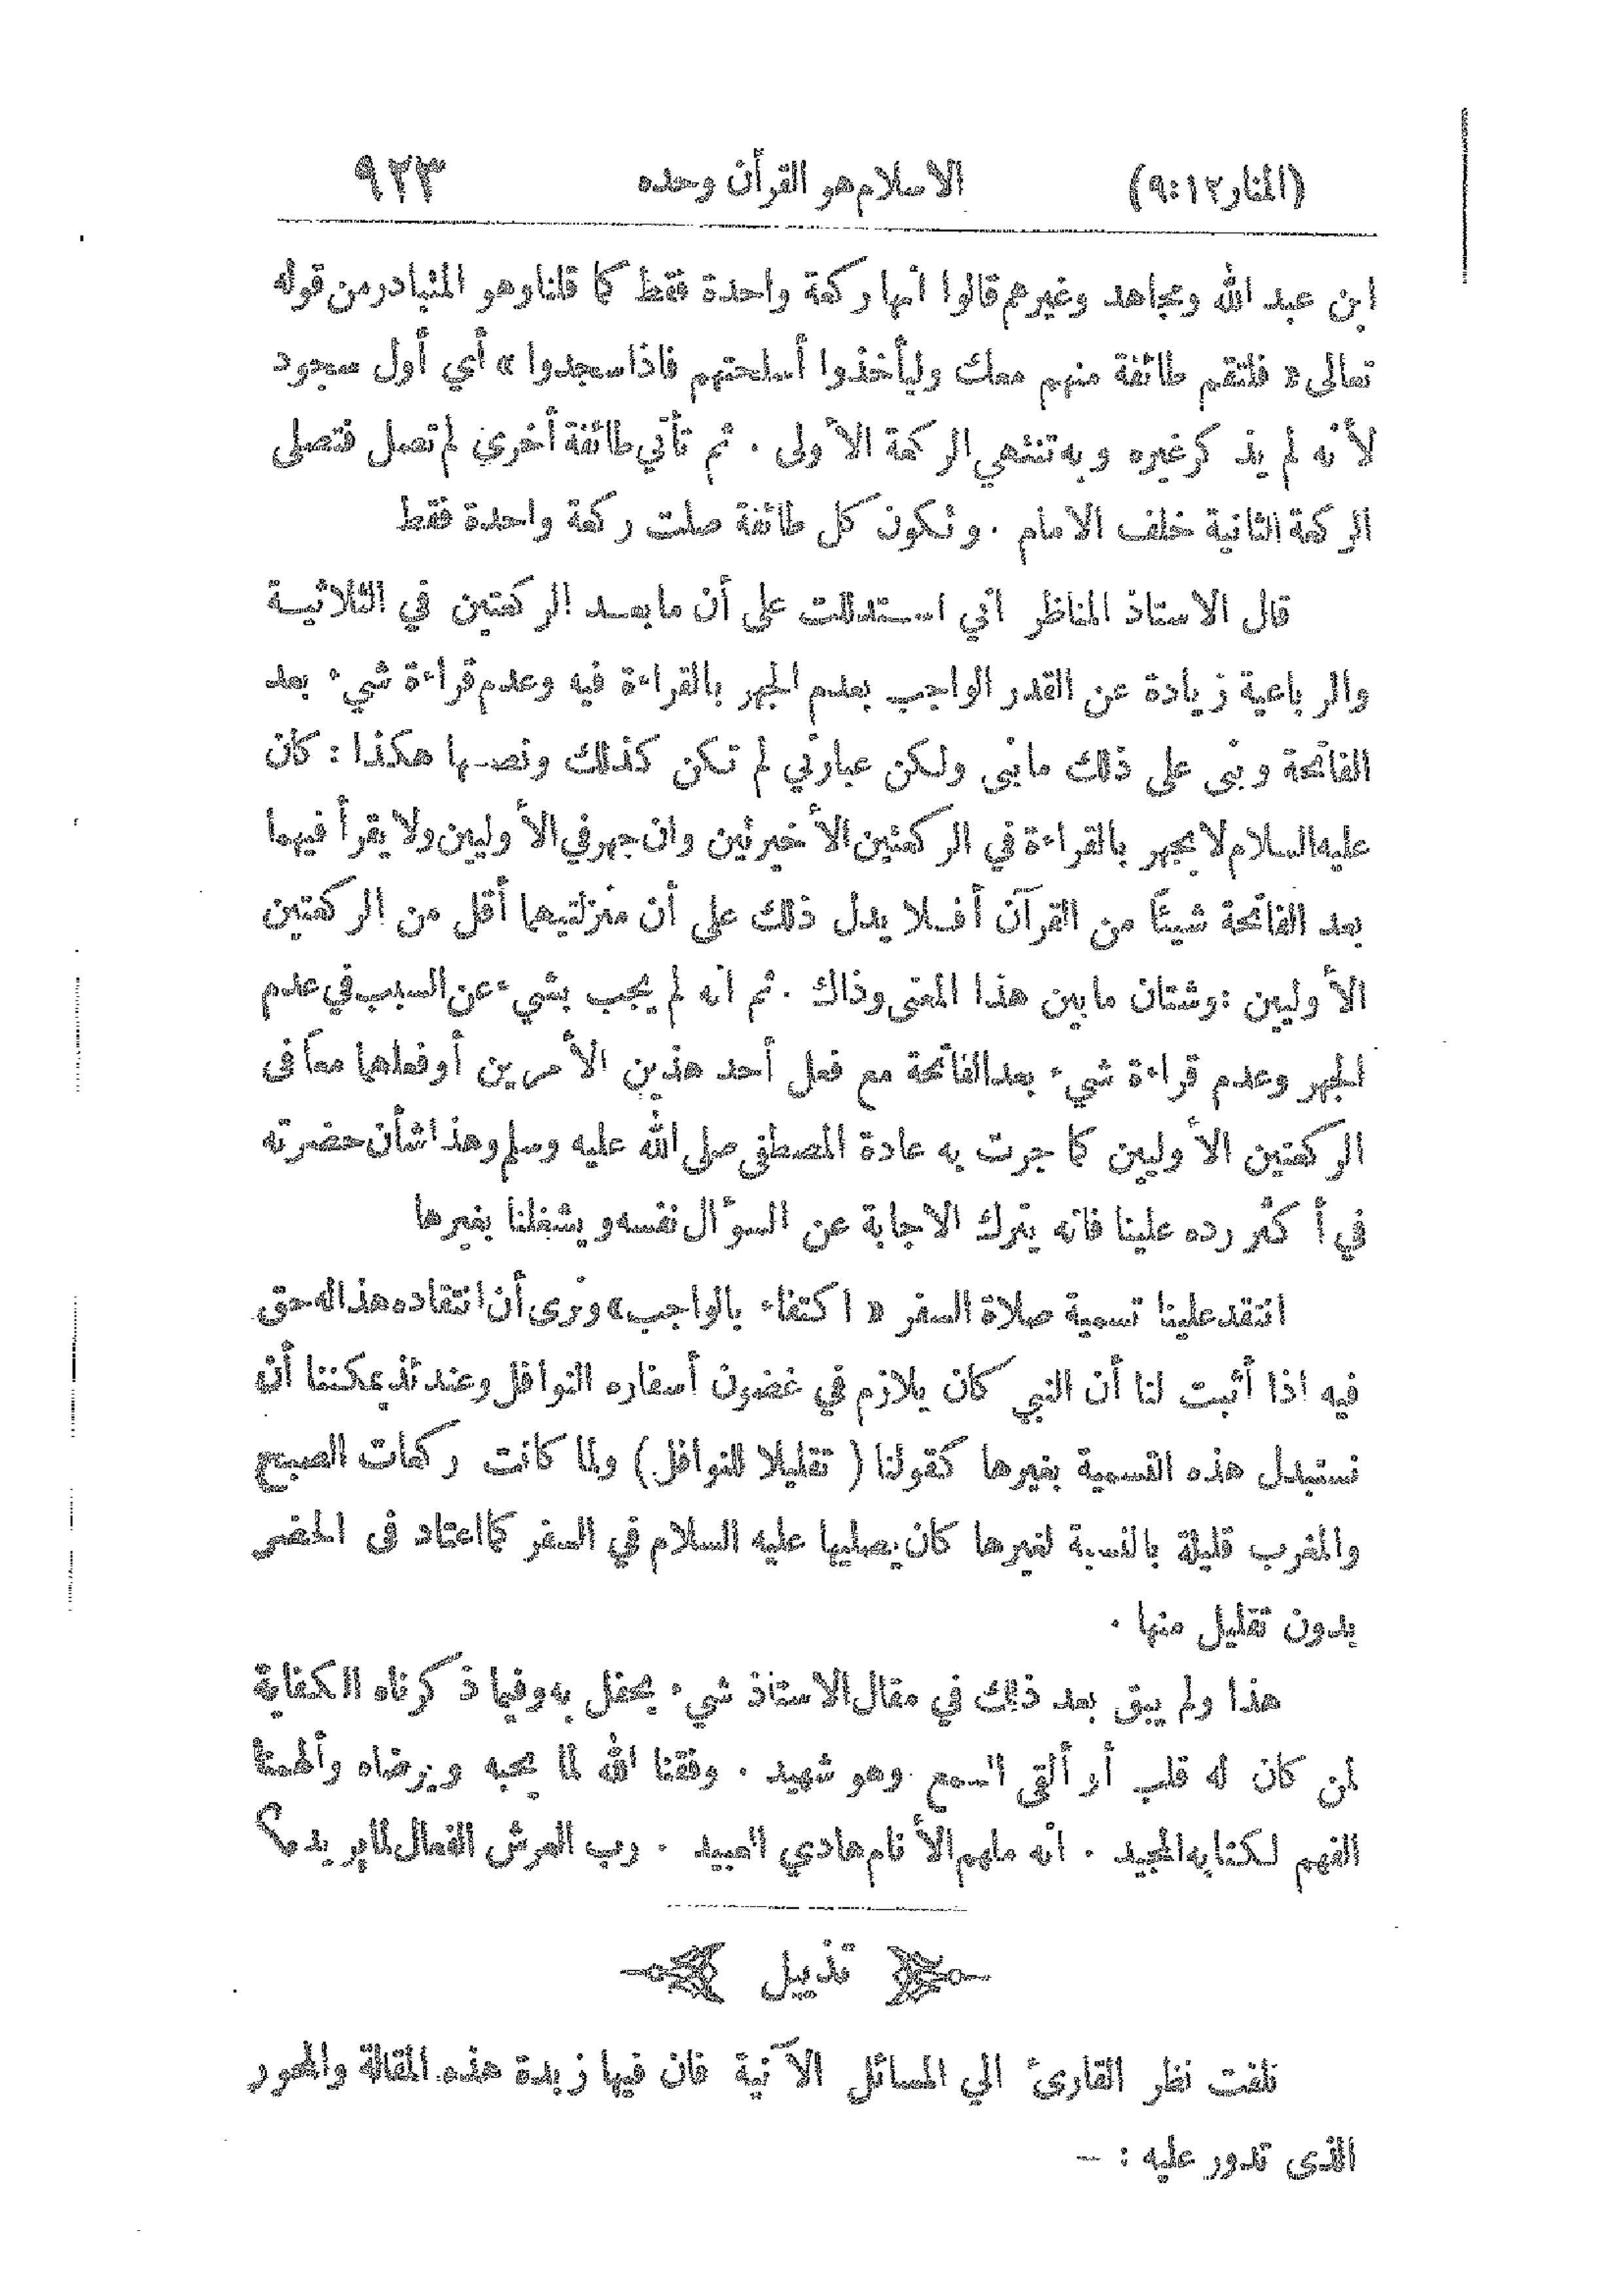 (المنار١٢:٩) الاسلام هو القرآن وحده ٩٢٣
ابن عبد الله ومجاهد وغيرهم قالوا انها ركعة واحدة فقط كما قلنا وهو المتبادر من قوله
تعالى « فلتقم طائفة منهم معك وليأخذوا أسلحتهم فاذا سجدوا » أي أول سجود
لأنه لم يذكر غيره وبه تنتهي الركعة الأولى . ثم تأتي طائفة أخرى لم تصل فتصلى
الركعة الثانية خلف الامام . وتكون كل طائفة صلت ركعة واحدة فقط
قال الاستاذ المناظر اني استدللت على أن ما بعد الركعتين في الثلاثية
والرباعية زيادة عن القدر الواجب بعدم الجهر بالقراءة فيه وعدم قراءة شيء بعد
الفاتحة وبنى على ذلك ما بنى ولكن عبارتي لم تكن كذلك ونصها هكذا : كان
عليه السلام لا يجهر بالقراءة في الركعتين الأخيرتين وان جهر في الأوليين ولا يقرأ فيهما
بعد الفاتحة شيئاً من القرآن أفلا يدل ذلك على أن منزلتيهما أقل من الركعتين
الأوليين : وشتان ما بين هذا المعنى وذاك . ثم انه لم يجب بشيء عن السبب في عدم
الجهر وعدم قراءة شيء بعد الفاتحة مع فعل أحد هذين الأمرين أو فعلهما معاً فى
الركعتين الأوليين كما جرت به عادة المصطفى صلى الله عليه وسلم وهذا شأن حضرته
في أكثر رده علينا فانه يترك الاجابة عن السؤال نفسه ويشغلنا بغيرها
انتقد علينا تسمية صلاة السفر « اكتفاء بالواجب » ونرى أن انتقاده هذا له حق
فيه اذا أثبت لنا أن النبي كان يلازم في غضون أسفاره النوافل وعندئذ يمكننا أن
نستبدل هذه التسمية بغيرها كقولنا ( تقليلا للنوافل ) ولما كانت ركعات الصبح
والمغرب قليلة بالنسبة لغيرها كان يصليها عليه السلام في السفر كما اعتاد فى الحضر
بدون تقليل منها .
هذا ولم يبق بعد ذلك في مقال الاستاذ شيء يحفل به وفيما ذكرناه الكفاية
لمن كان له قلب أو ألقى السمع وهو شهيد . وفقنا الله لما يحبه ويرضاه وألهمنا
الفهم لكتابه المجيد . انه ملهم الأنام هادي العبيد . رب العرش الفعال لما يريد
تذييل
نلفت نظر القارئ الي المسائل الآتية فان فيها زبدة هذه المقالة والمحور
الذى تدور عليه : —